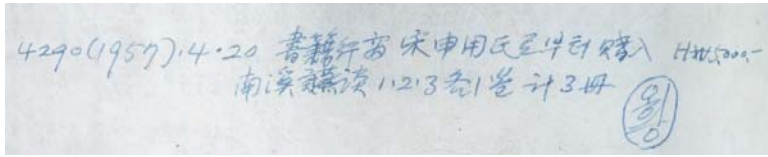 4290(1957).4.20 書籍行商 宋申用氏로부터 購入 HW5,000.-
南溪禮說 1.2.3 各1卷 計3冊